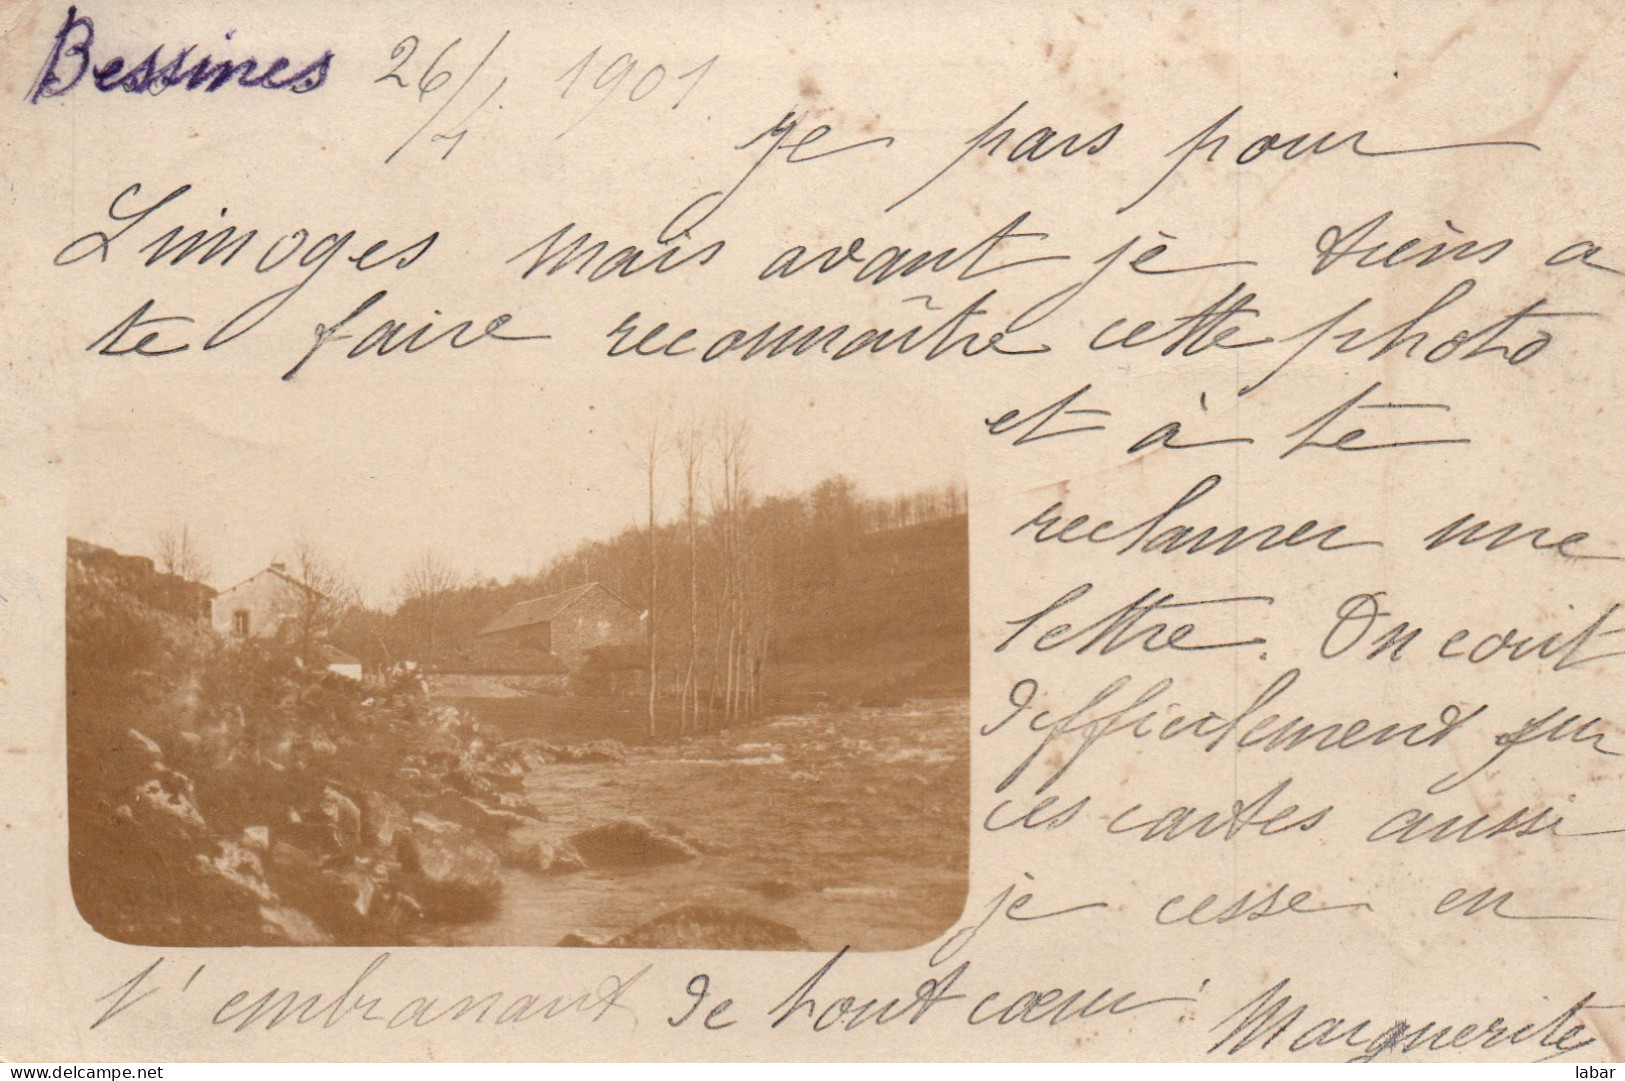 Bessines 26/1. 1901
Je pars pour
Limoges mais avant je tiens a
te faire reconnaître cette photo
et à te
reclamer une
lettre. On écrit
difficilement sur
ces cartes aussi
je cesse en
t'embrassant de tout cœur.
Marguerite
delcampe.net
labar